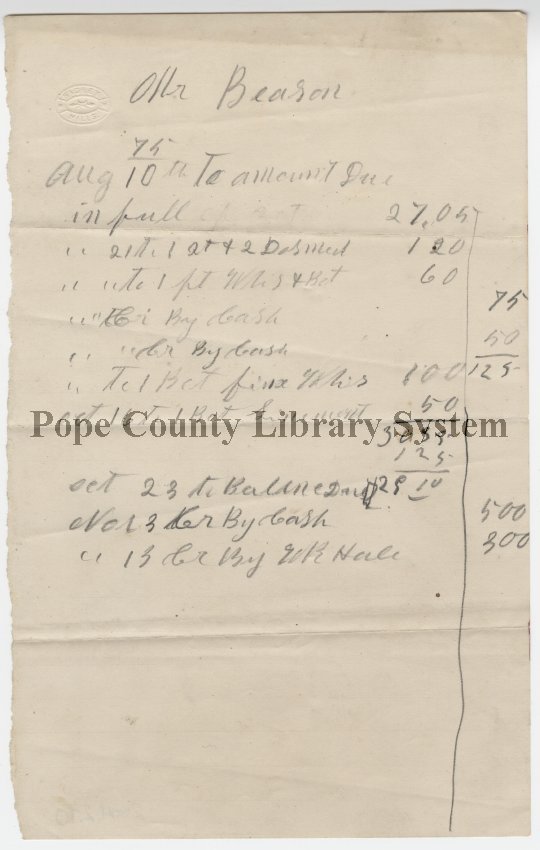 Mr Beason
75
Aug 10th To amount Due
in full 27,05
" 21 to 1 qt & 2 Dos med 1 20
" " to 1 pt Whis & Bot 60
" " Cr By Cash 75
" " Cr By Cash 50
" to 1 Bot fine Whis 1 00 125
oct 1st to 1 Bot 50
Pope County Library System
30 35
1 25
oct 23 to Balance Due 29 10
Nov 3 Cr By Cash 500
" 13 Cr By W R Hale 300